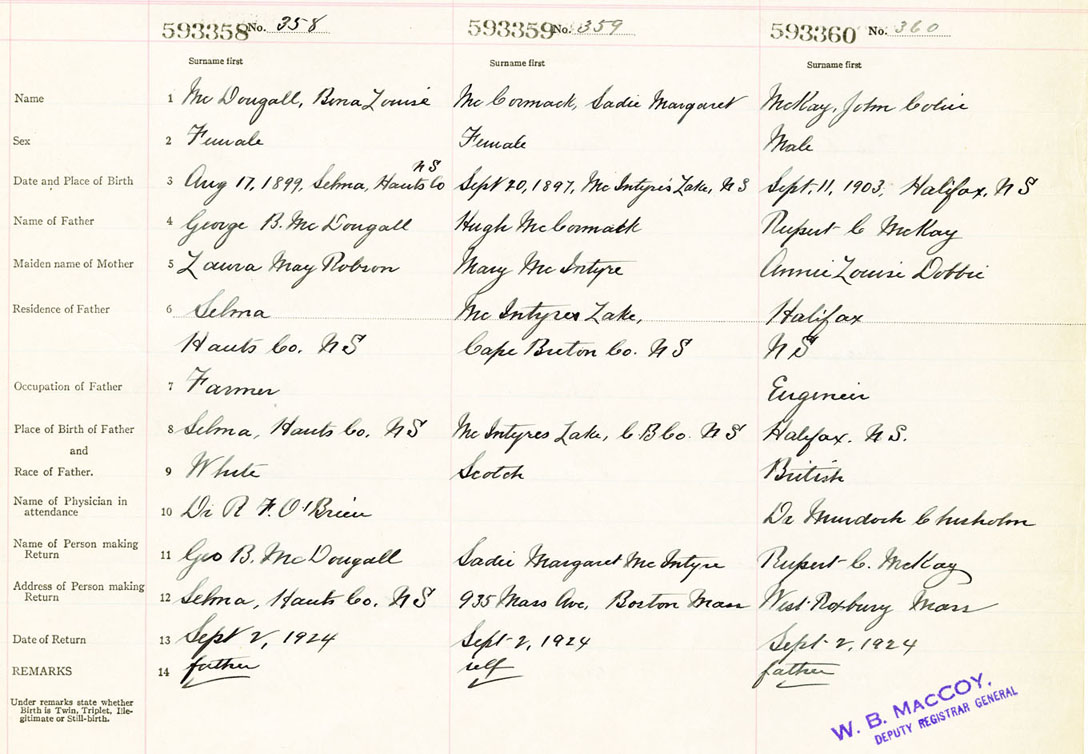 593358 No. 358 593359 No. 359 593360 No. 360
Surname first Surname first Surname first
Name 1 Mc Dougall, Bona Louise Mc Cormack, Sadie Margaret McKay, John Colin
Sex 2 Female Female Male
N S
Date and Place of Birth 3 Aug 17, 1899, Selma, Hants Co Sept 20, 1897, Mc Intyre's Lake, N S Sept. 11, 1903, Halifax, N S
Name of Father 4 George B. Mc Dougall Hugh McCormack Rupert C McKay
Maiden name of Mother 5 Laura May Robson Mary Mc Intyre Annie Louise Dobbie
Residence of Father 6 Selma Mc Intyres Lake, Halifax
Hants Co. N S Cape Breton Co. N S N S
Occupation of Father 7 Farmer Engineer
Place of Birth of Father 8 Selma, Hants Co. N S Mc Intyres Lake, C B Co. N S Halifax. N S.
and
Race of Father. 9 White Scotch British
Name of Physician in
attendance 10 Dr R F. O'Brien Dr Murdock Chisholm
Name of Person making
Return 11 Geo B. Mc Dougall Sadie Margaret Mc Intyre Rupert C. McKay
Address of Person making
Return 12 Selma, Hants Co. N S 935 Mass Ave, Boston Mass West Roxbury Mass
Date of Return 13 Sept 2, 1924 Sept 2, 1924 Sept 2, 1924
REMARKS 14 father self father
Under remarks state whether
Birth is Twin, Triplet, Ille-
gitimate or Still-birth.
W. B. MACCOY.
DEPUTY REGISTRAR GENERAL